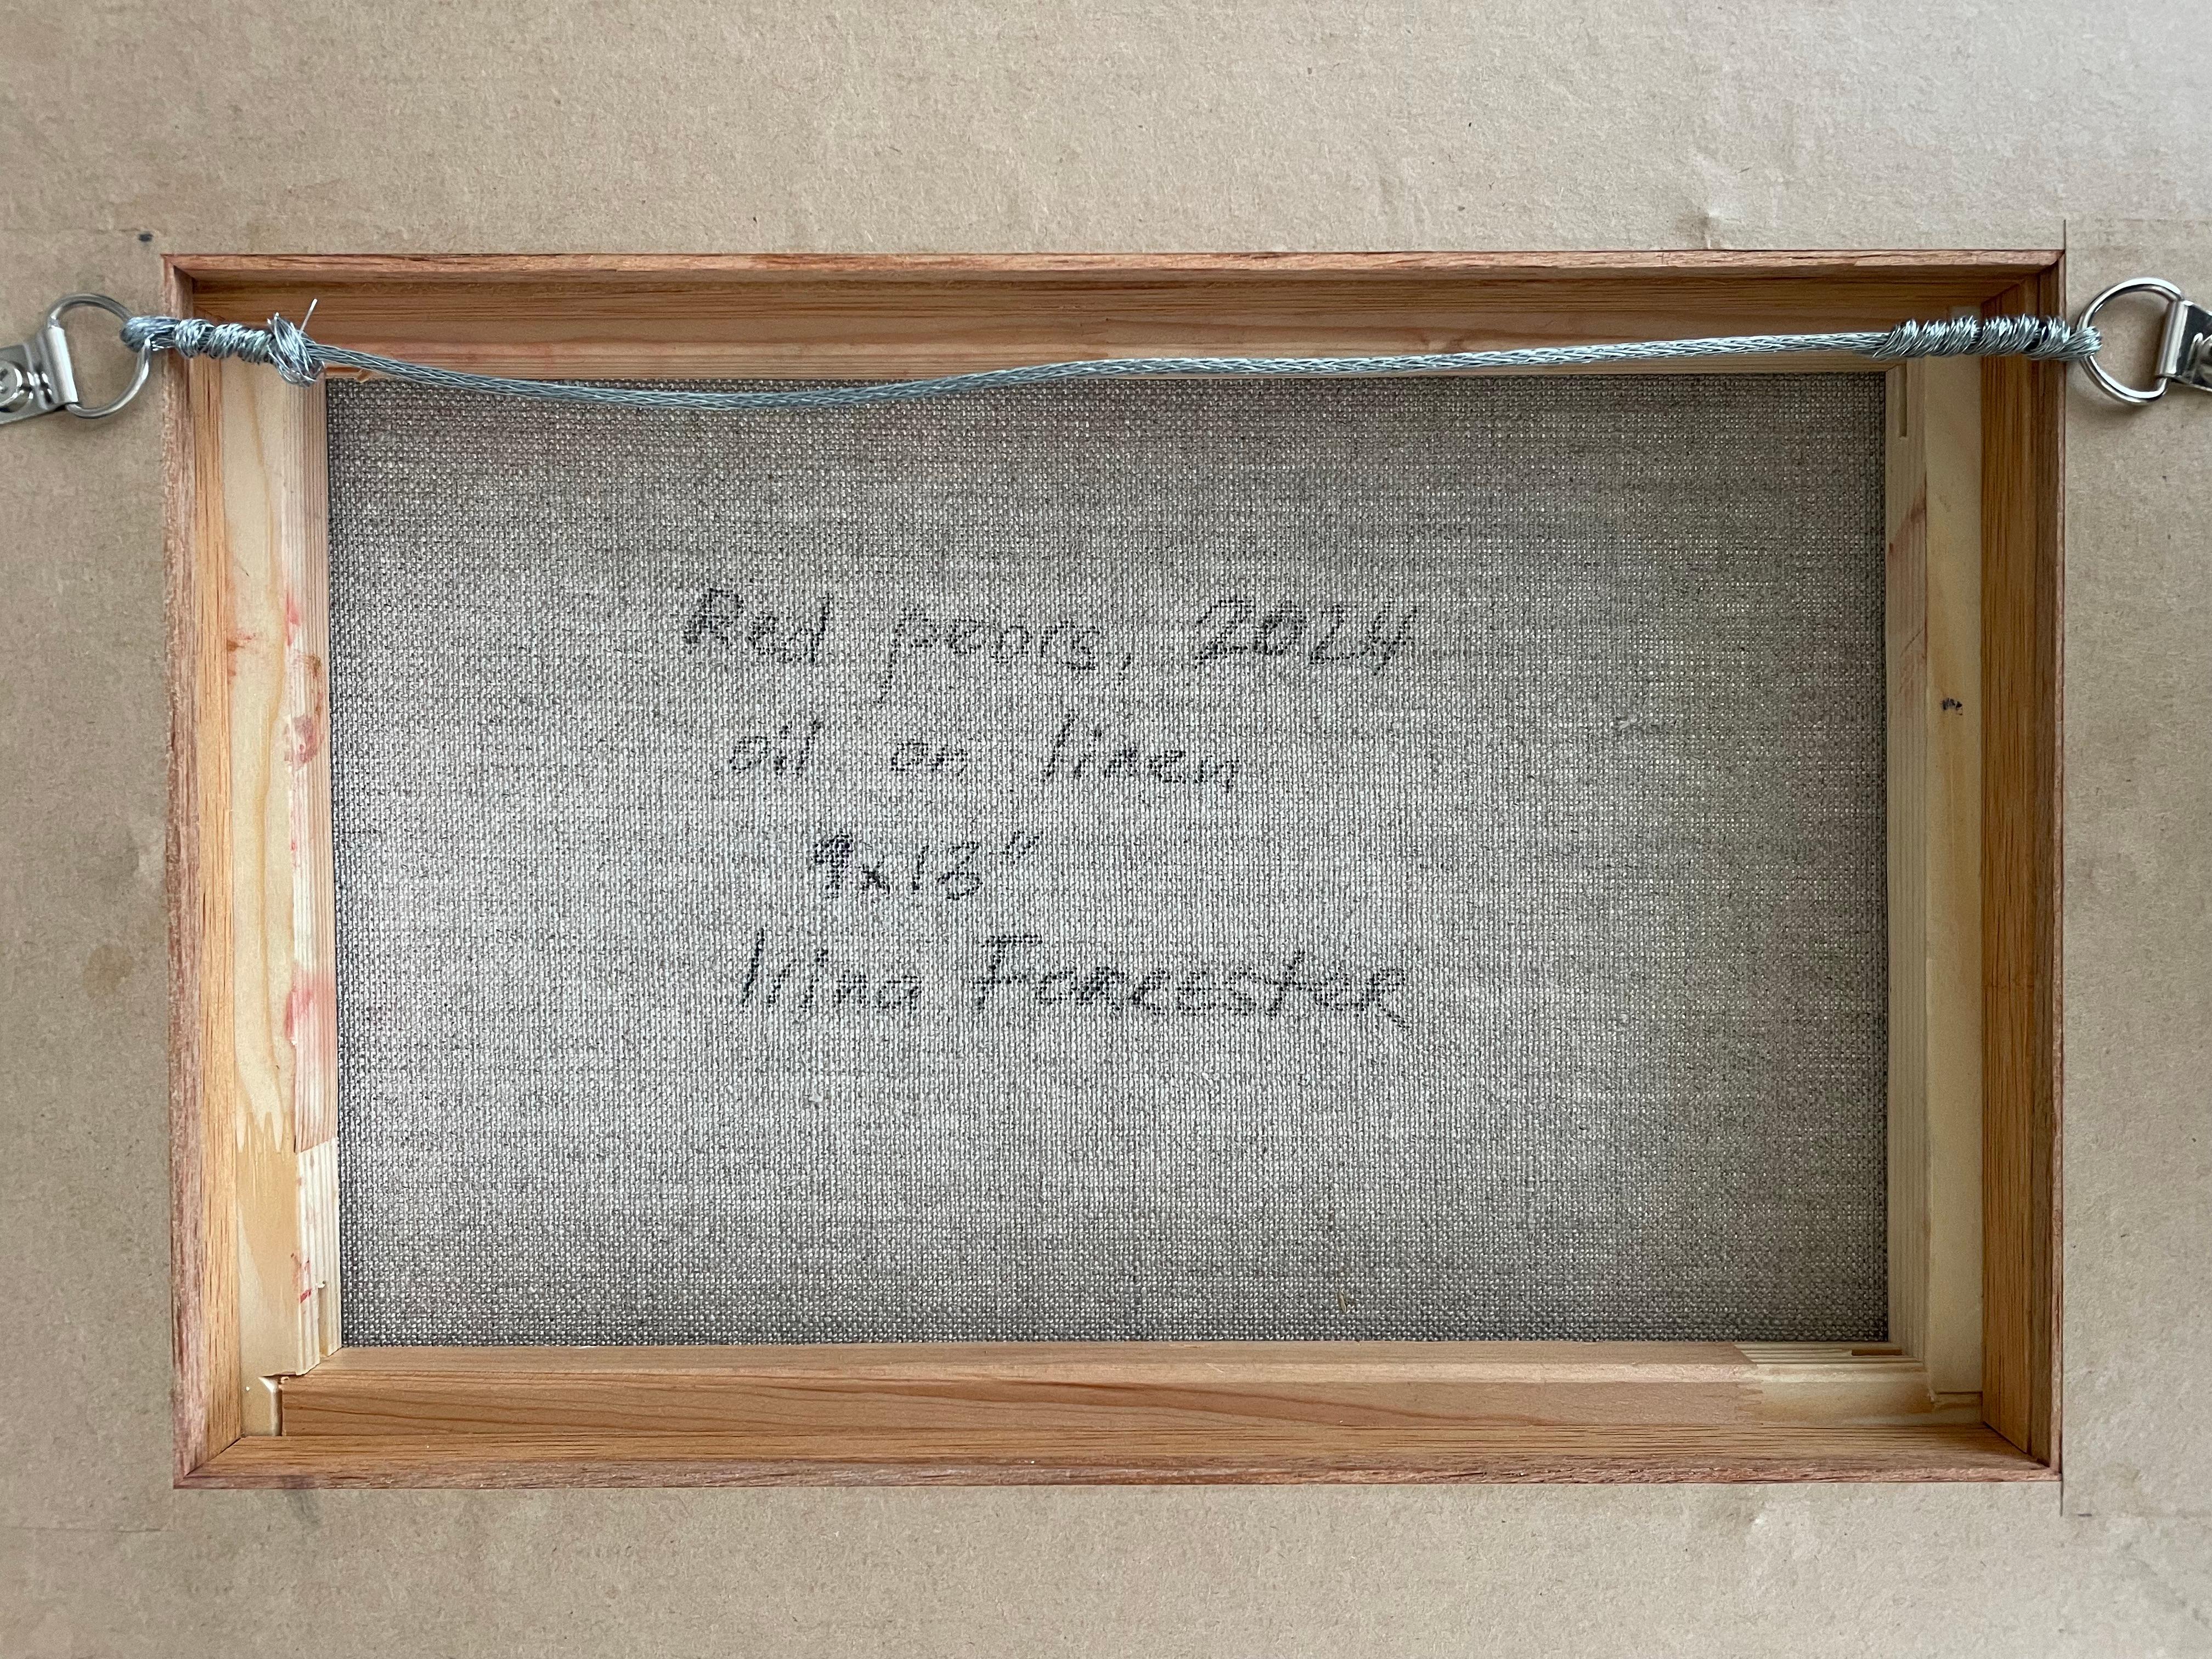 Red pears, 2024
oil on linen
9x18"
Irina Forrester